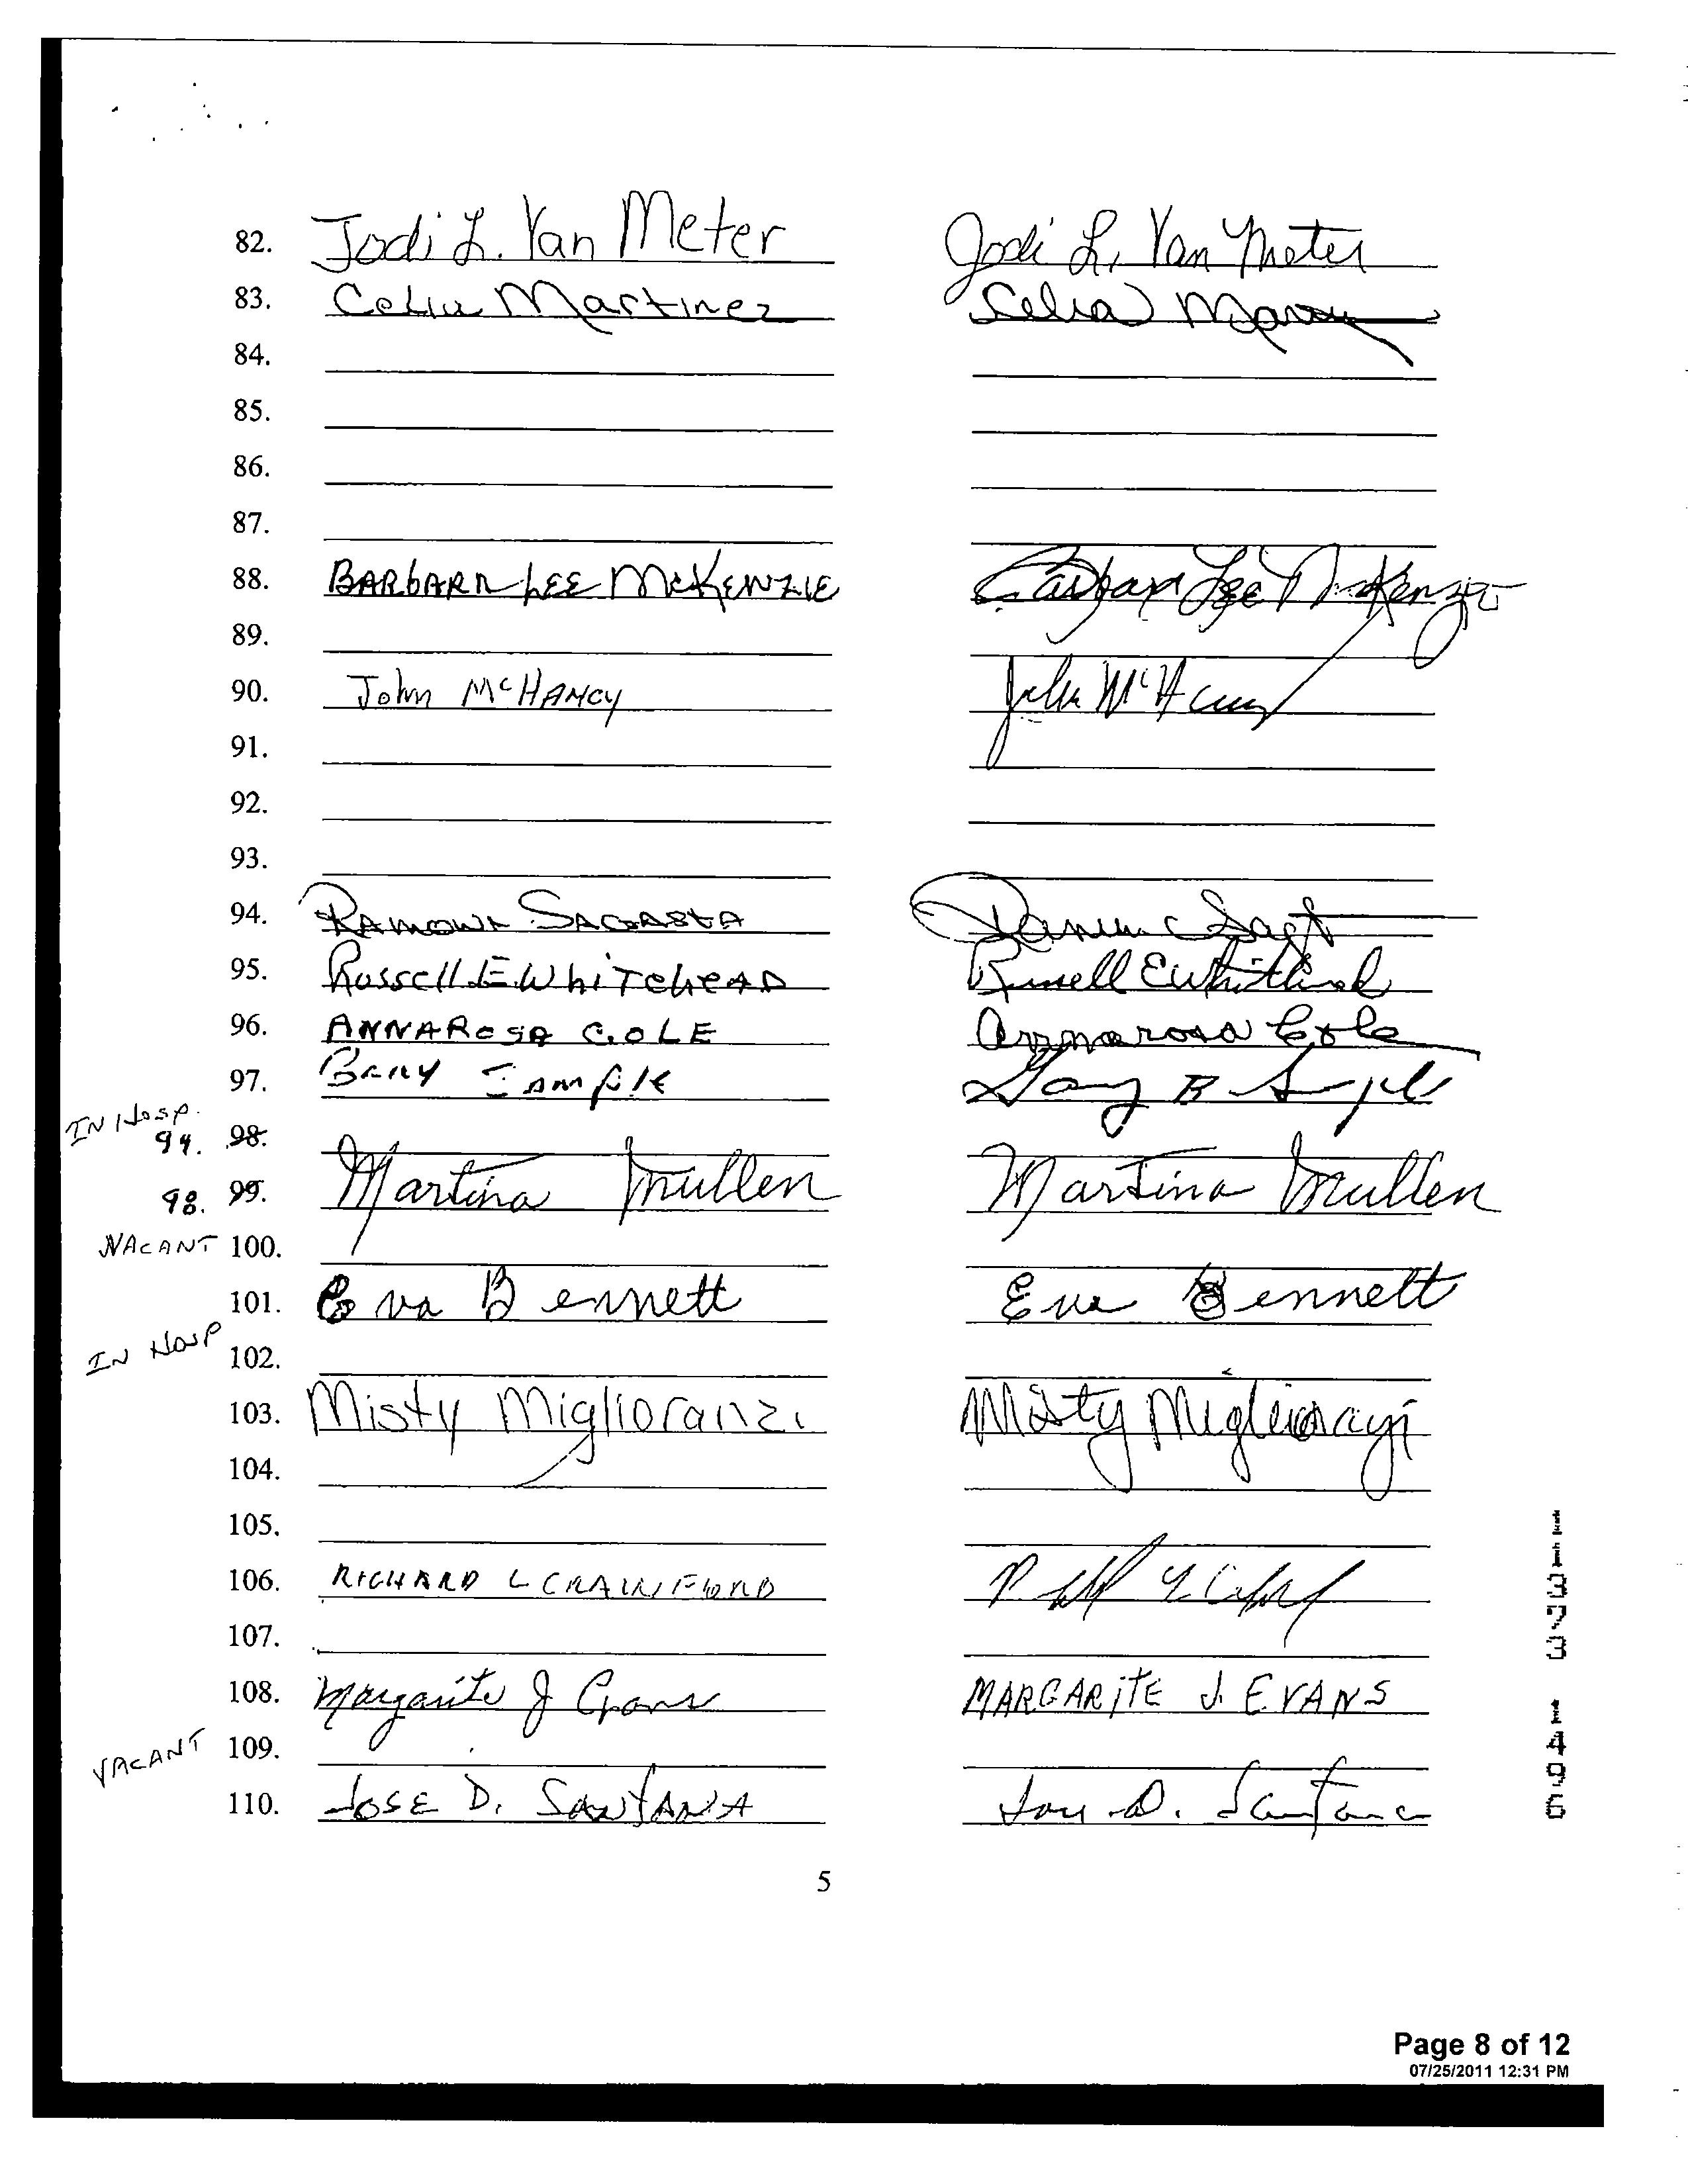 82. Jodi L. Van Meter Jodi L. Van Meter
83. Celia Martinez Celia
84.
85.
86.
87.
88. BARbARA LEE McKENZIE Barbara Lee McKenzie
89.
90. John McHANCY John McHancy
91.
92.
93.
94. RAMONA SAGASTA
95. Russell E WhiTeheAD Russell E Whitehead
96. ANNAROSA COLE Annarosa Cole
97. Sample Gary B Sample
IN Hosp.
99. 98.
98. 99. Martina Mullen Martina Mullen
VACANT 100.
101. Eva Bennett Eva Bennett
IN Hosp 102.
103. Misty Miglioranzi Misty Miglioranzi
104.
105.
106. RICHARD L CRAWFORD
107.
108. Margarite J Evans MARGARiTE J. EVANS
VACANT 109.
110. JOSE D. SANTANA Jose D. Santana
5
113731 1496
Page 8 of 12
07/25/2011 12:31 PM